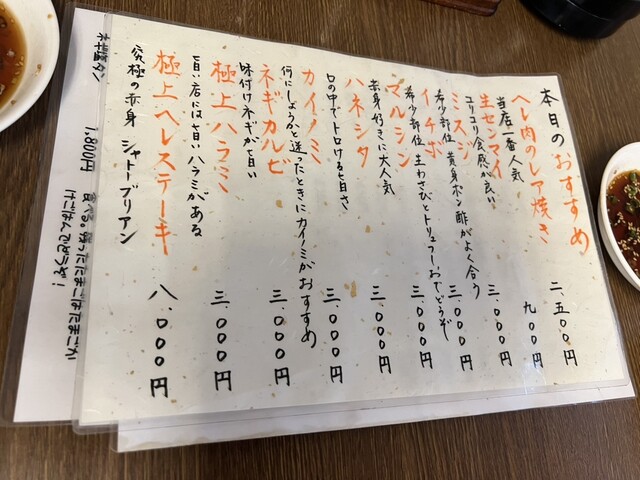 本日のおすすめ
ヘレ肉のレア焼き 二、五〇〇円
当店一番人気
生センマイ 九〇〇円
コリコリ食感が良い
ミスジ 三、〇〇〇円
希少部位 黄身ポン酢がよく合う
イチボ 三、〇〇〇円
希少部位 生わさびとトリュフしおでどうぞ
マルシン 三、〇〇〇円
赤身好きに大人気
ハネシタ 三、〇〇〇円
口の中でトロける旨さ
カイノミ 三、〇〇〇円
何にしようかと迷ったときにカイノミがおすすめ
ネギカルビ 三、〇〇〇円
味付けネギが旨い
極上ハラミ 三、〇〇〇円
旨い店には旨いハラミがある
極上ヘレステーキ 八、〇〇〇円
究極の赤身 シャトーブリアン
ネギ塩タン 1,800円